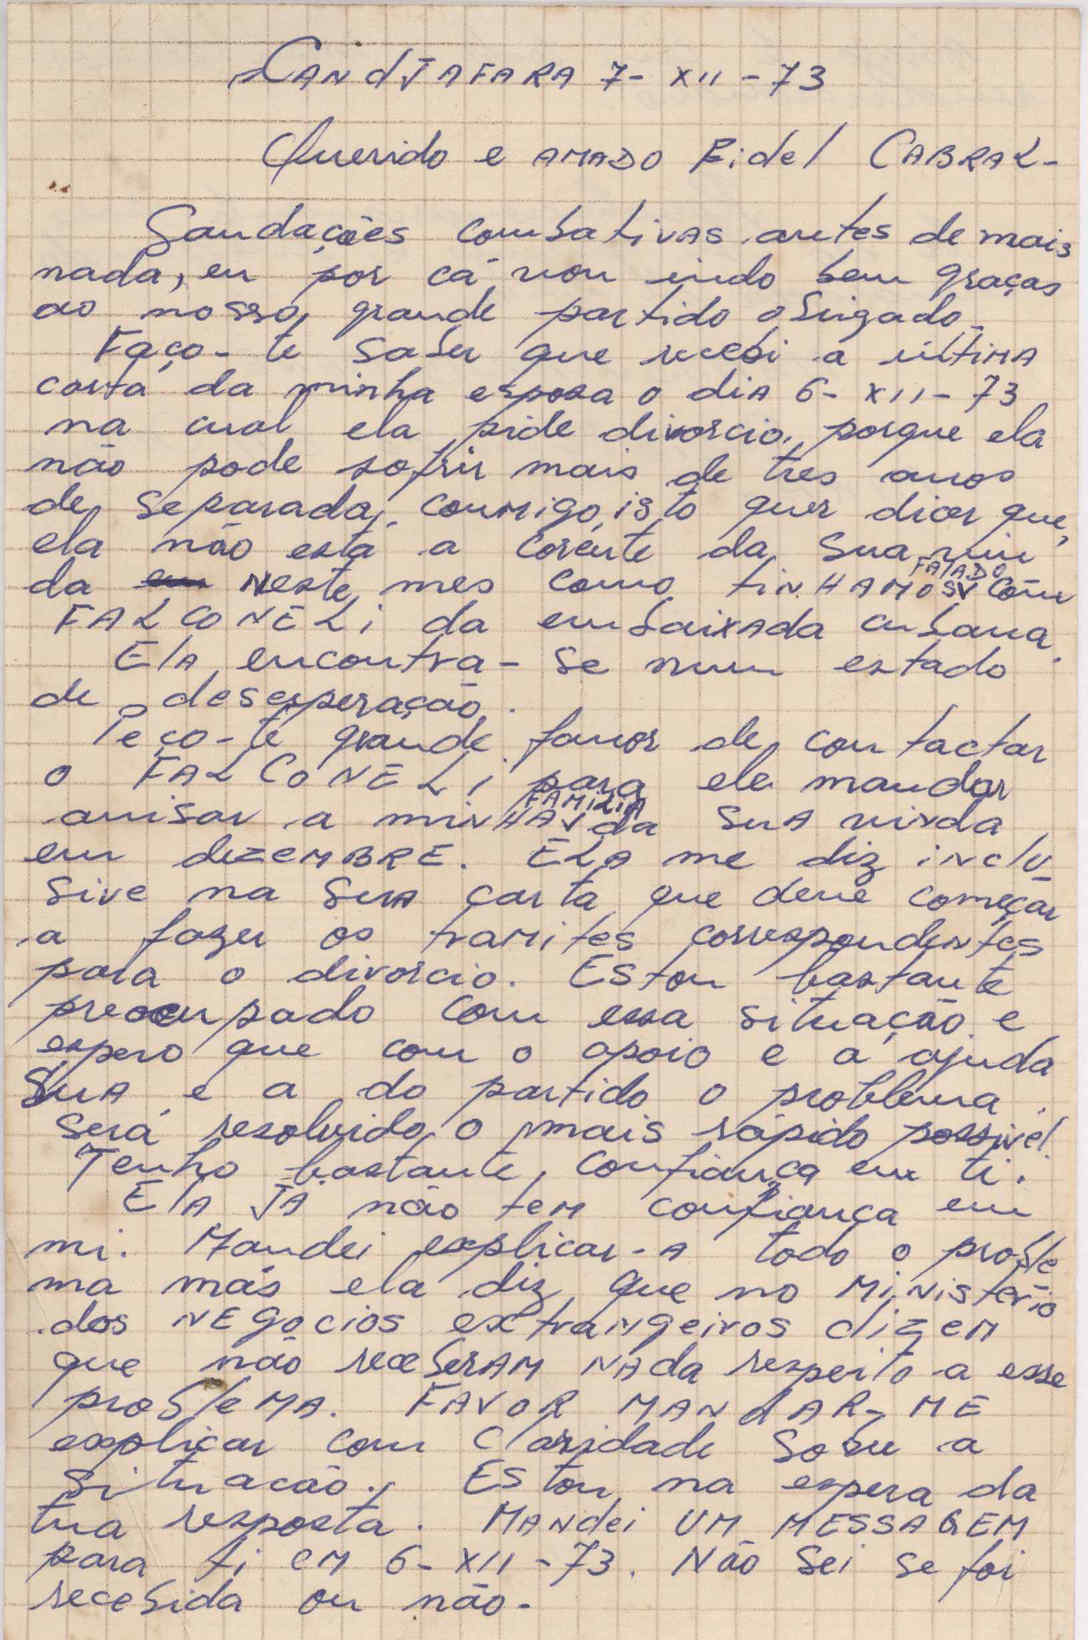 CANDJAFARA 7- XII - 73
Querido e AMADO Fidel CABRAL-
Saudações combativas antes de mais
nada, eu por cá vou indo bem graças
ao nosso grande partido obrigado.
Faço-te saber que recebi a última
carta da minha esposa o dia 6- XII - 73
na cual ela pide divorcio, porque ela
não pode sofrir mais de tres anos
de separada conmigo, isto quer dicer que,
ela não esta a corente da sua vin
da neste mes como tinHAMOS FALADO com
FALCONELi da embaixada cubana.
Ela encontra-se num estado
de desesperação.
Peço-te grande favor de contactar
o FALCONELi para ele mandar
avisar a minHA FAMILIA da suA vinda
em dezeMBRE. ELA me diz inclu
sive na sua carta que deve começar
a fazer os tramites correspondentes
para o divorcio. Estou bastante
preocupado com essa situação e
espero que com o apoio e a ajuda
suA e a do partido o problema
será resolvido o mais rápido possivel.
Tenho bastante confiança em ti.
ElA JÁ não teM confiança em
mi. Mandei explicar-A todo o proble
ma más ela diz que no Ministério
dos NEgocios extrangeiros dizem
que não receberAM NAda respeito a esse
problEMA. FAVOR MANdAR-ME
explicar com claridade sobre a
situacão. Estou na espera da
tua resposta. MANdei UM MESSAGEM
para ti EM 6- XII - 73. Não sei se foi
recebida ou não.